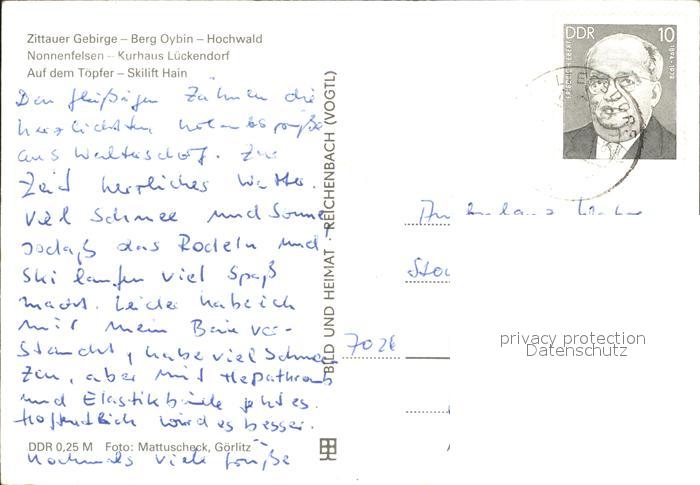 Zittauer Gebirge – Berg Oybin – Hochwald
Nonnenfelsen – Kurhaus Lückendorf
Auf dem Töpfer – Skilift Hain
Den fleißigen Zähnen die
herzlichsten Urlaubsgrüße
aus Waltersdorf. Zur
Zeit herrliches Wetter.
Viel Schnee und Sonne,
sodaß das Rodeln und
Ski laufen viel Spaß
macht. Leider habe ich
mir mein Bein ver-
staucht, habe viel Schmer
zen, aber mit Hepathromb
und Elastikbinde geht es.
Hoffentlich wird es besser.
Nochmals viele Grüße
DDR 0,25 M Foto: Mattuscheck, Görlitz
BILD UND HEIMAT · REICHENBACH (VOGTL)
DDR 10
FRIEDRICH EBERT
1894-1979
An
7026
privacy protection
Datenschutz